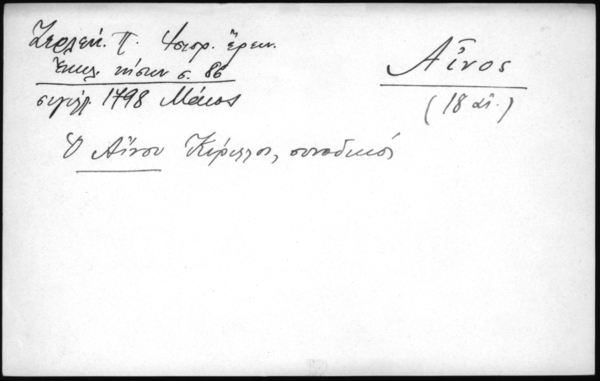 Ζερλέν. Π. Ἱστορ. ἔρευν.
Ἐκκλ. νήσων σ. 86
σιγίλ. 1798 Μάιος
Αἶνος
(18 αἰ.)
Ὁ Αἴνου Κύριλλος, συνοδικός